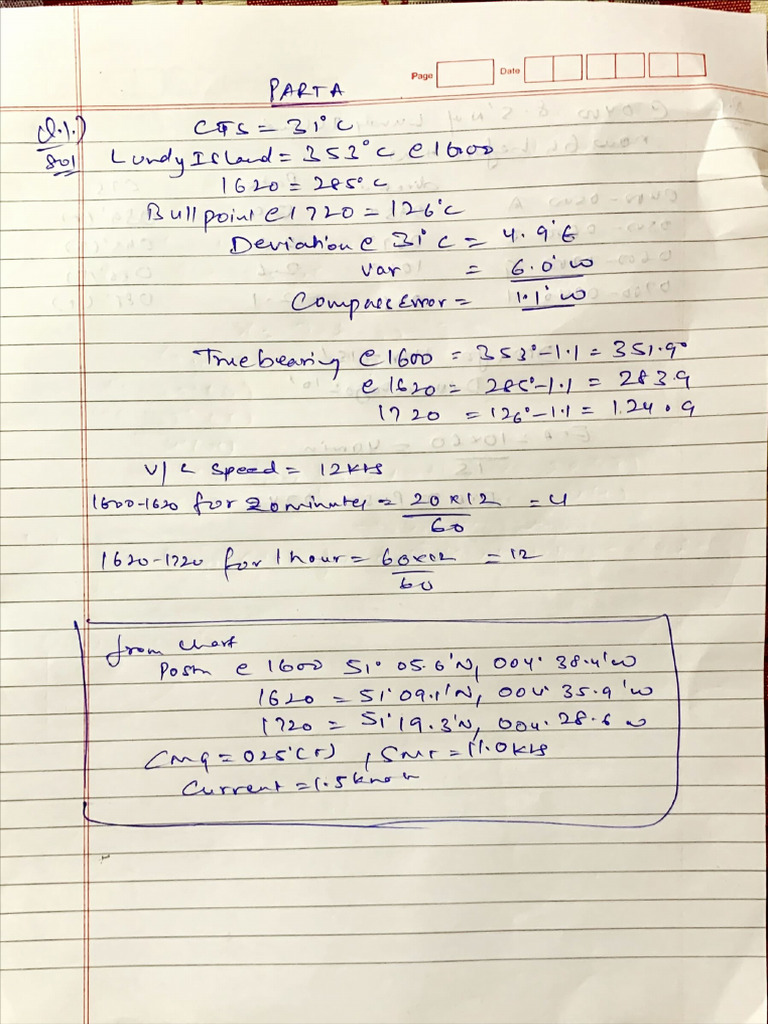 Page Date
PART A
Q.1.) CTS = 31°C
Sol Lundy Island = 353°C @ 1600
1620 = 285°C
Bull point @ 1720 = 126°C
Deviation @ 31°C = 4.9°E
Var = 6.0°W
Compass Error = 1.1°W
True bearing @ 1600 = 353° - 1.1 = 351.9°
@ 1620 = 285° - 1.1 = 283.9
1720 = 126° - 1.1 = 124.9
V/L Speed = 12 kts
1600-1620 for 20 minutes = 20 x 12 = 4
60
1620-1720 for 1 hour = 60x12 = 12
60
from chart
Posn @ 1600 51° 05.6'N, 004° 38.4'W
1620 = 51° 09.1'N, 004° 35.9'W
1720 = 51° 19.3'N, 004° 28.6 W
CMG = 025°(T), SMG = 11.0 kts
Current = 1.5 knots